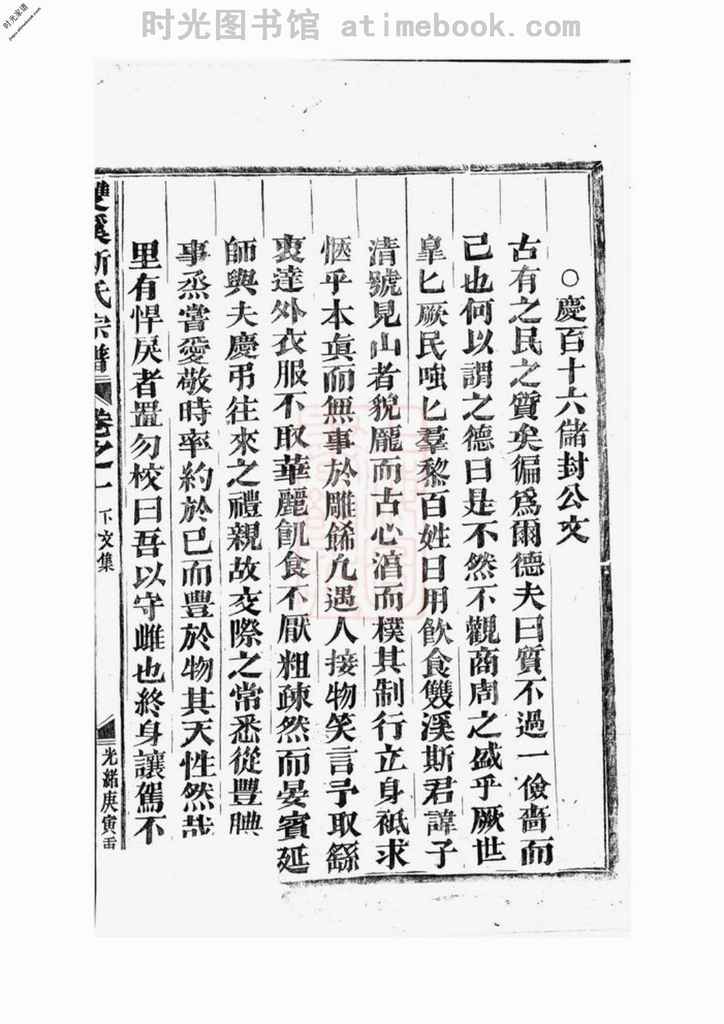 时光图书馆 atimebook.com
时光家谱
○慶百十六儲封公文
古有之民之質矣徧爲爾德夫曰質不過一儉嗇而
己也何以謂之德曰是不然不觀商周之盛乎厥世
皐匕厥民嗤匕羣黎百姓日用飲食雙溪斯君諱子
清號見山者貌龐而古心湻而樸其制行立身祗求
愜乎本眞而無事於雕餙九遇人接物笑言予取繇
衷達外衣服不取華麗飢食不厭粗疎然而晏賓延
師與夫慶弔往來之禮親故交際之常悉從豐腆
事烝嘗愛敬時率約於己而豐於物其天性然哉
里有悍戾者置勿校曰吾以守雌也終身讓駕不
雙溪斯氏宗譜 卷之一 下文集 光緒庚寅重